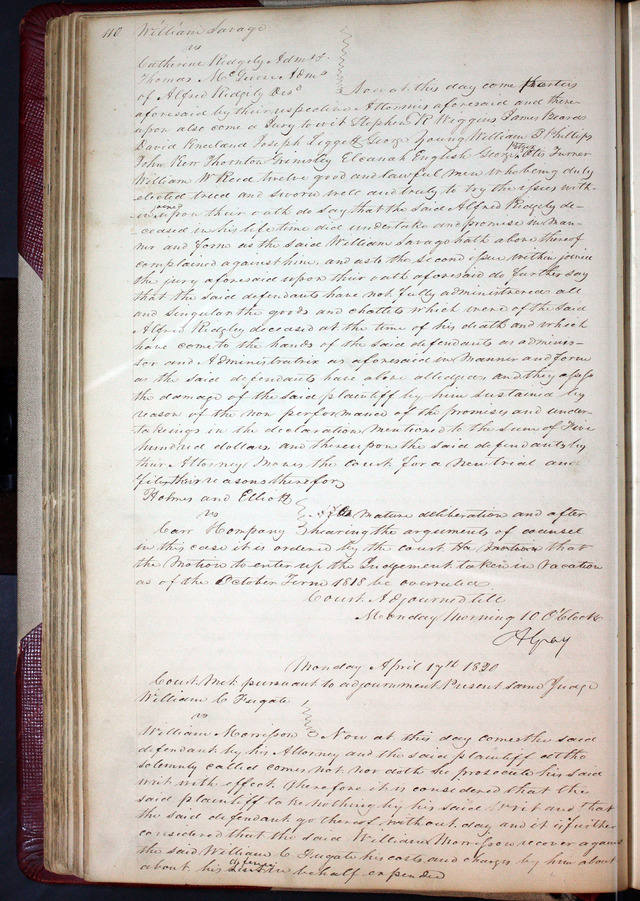 110 William Savage
vs
Catherine Ridgely Admx &
Thomas McGuire Admr
of Alfred Ridgely Decd Now at this day come parties
aforesaid by their respective Attornies aforesaid and there
upon also come a Jury to wit Stephen R Wiggins James Beards
David Kneeland Joseph Liggett George Young William D Phillips
John Kerr Thornton Grimsley Elcanah English George Otis Turner
William W Reed twelve good and lawful men who being duly
elected tried and sworn well and truly to try the issues with-
in joined upon their oath do say that the said Alfred Ridgely de-
ceased in his life time did undertake and promise in man-
ner and form as the said William Savage hath above thereof
complained against him, and as to the second issue within joined
the jury aforesaid upon their oath aforesaid do further say
that the said defendants have not fully administered all
and singular the goods and chattels which were of the said
Alfred Ridgley deceased at the time of his death and which
have come to the hands of the said defendants as adminis-
tor and Administratrix as aforesaid in Manner and form
as the said defendants have above alledged and they assess
the damage of the said plaintiff by him sustained by
reason of the non performance of the promises and under-
takings in the declaration mentioned to the sum of Five
hundred dollars and thereupon the said defendants by
their Attorney Moves the court for a New trial and
files their reasons therefor
Holmes and Elliott
vs Mature deliberation and after
Carr & Company hearing the arguments of counsel
in this case it is ordered by the court that
the Motion to enter up the Judgement taken in Vacation
as of the October Term 1818 be overruled
Court Adjourned till
Monday Morning 10 O'Clock
A Gray
Monday April 17th 1820
Court Met pursuant to adjournment Present same Judge
William C Fugate
vs
William Morrisson Now at this day comes the said
defendant by his Attorney and the said plaintiff altho
solemnly called comes not nor doth he prosecute his said
writ with effect. Therefore it is considered that the
said plaintiff take Nothing by his said Writ and that
the said defendant go thereof without day and it is further
considered that the said William Morrisson recover against
the said William C Fugate his costs and charges by him about
about his defence in behalf expended